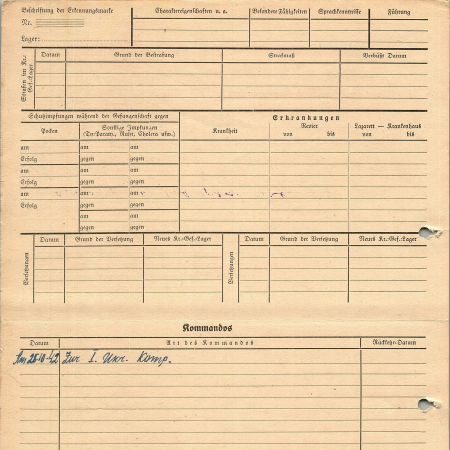 Beschriftung der Erkennungsmarke
Nr.
Lager:
Charaktereigenschaften u. a.
Besondere Fähigkeiten
Sprachkenntnisse
Führung
Strafen im Kr.-Gef.-Lager
Datum
Grund der Bestrafung
Strafmaß
Verbüßt Datum
Schutzimpfungen während der Gefangenschaft gegen
Erkrankungen
Pocken
Sonstige Impfungen
(Ty. Param., Ruhr, Cholera usw.)
Krankheit
Revier
von bis
Lazarett — Krankenhaus
von bis
am am am
Erfolg gegen gegen
am am am
Erfolg gegen gegen
am am am
Erfolg gegen gegen
am am
gegen gegen
Versetzungen
Datum
Grund der Versetzung
Neues Kr.-Gef.-Lager
Versetzungen
Datum
Grund der Versetzung
Neues Kr.-Gef.-Lager
Kommandos
Datum
Art des Kommandos
Rückkehr-Datum
Zur I. Ukr. Komp.